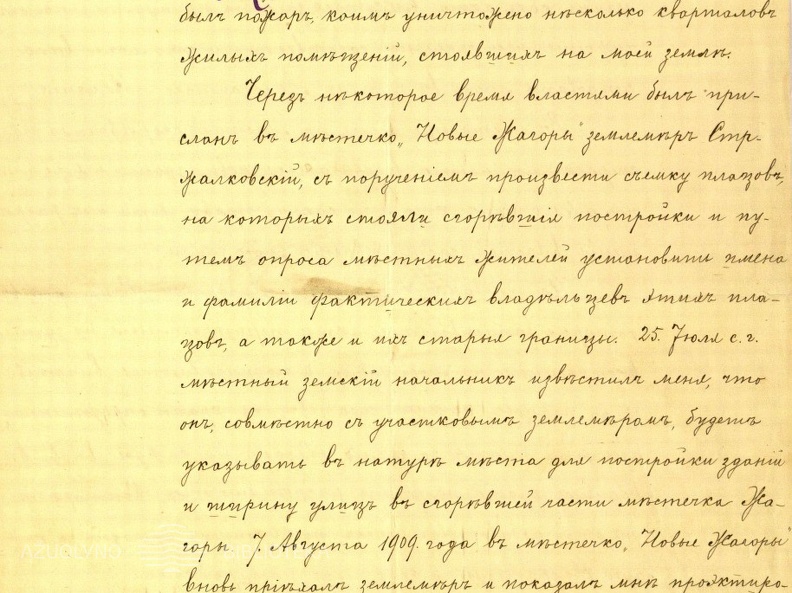 былъ пожаръ, коимъ уничтожено нѣсколько кварталовъ
жилыхъ помѣщеній, стоявшихъ на моей землѣ.
Черезъ нѣкоторое время властями былъ при-
сланъ въ мѣстечко „Новые Жагоры" землемѣръ Стр-
жалковскій, съ порученіемъ произвести съемку плацовъ,
на которыхъ стояли сгорѣвшія постройки и пу-
темъ опроса мѣстныхъ жителей установить имена
и фамиліи фактическихъ владѣльцевъ этихъ пла-
цовъ, а также и ихъ старыя границы. 25. Іюля с. г.
мѣстный земскій начальникъ извѣстилъ меня, что
онъ, совмѣстно съ участковымъ землемѣромъ, будетъ
указывать въ натурѣ мѣста для постройки зданій
и ширину улицъ въ сгорѣвшей части мѣстечка Жа-
горы. 7. Августа 1909. года въ мѣстечко „Новые Жагоры"
вновь пріѣхалъ землемѣръ и показалъ мнѣ проэктиро-